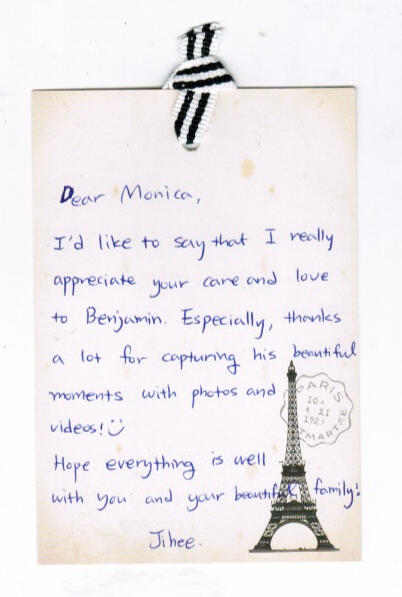 Dear Monica,
I'd like to say that I really
appreciate your care and love
to Benjamin. Especially, thanks
a lot for capturing his beautiful
moments with photos and
videos!
Hope everything is well
with you and your beautiful family!
Jihee.
PARIS
10 *
* XI
192
TMARTRE